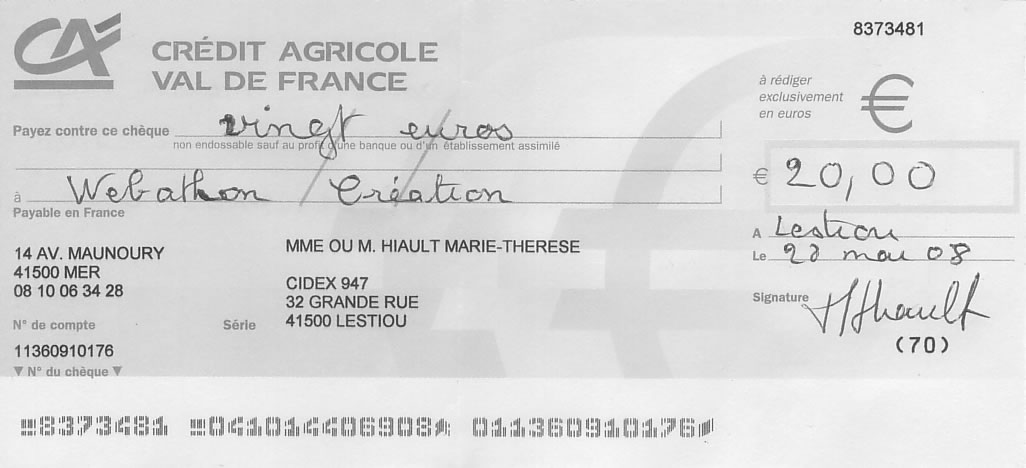 8373481
CA
CRÉDIT AGRICOLE
VAL DE FRANCE
à rédiger
exclusivement
en euros
€
Payez contre ce chèque vingt euros
non endossable sauf au profit d'une banque ou d'un établissement assimilé
€ 20,00
à Webathon Création
Payable en France
A Lestiou
Le mai 08
14 AV. MAUNOURY
41500 MER
08 10 06 34 28
MME OU M. HIAULT MARIE-THERESE
CIDEX 947
32 GRANDE RUE
41500 LESTIOU
Signature
(70)
N° de compte
Série
11360910176
▼ N° du chèque ▼
8373481 041014406908 011360910176